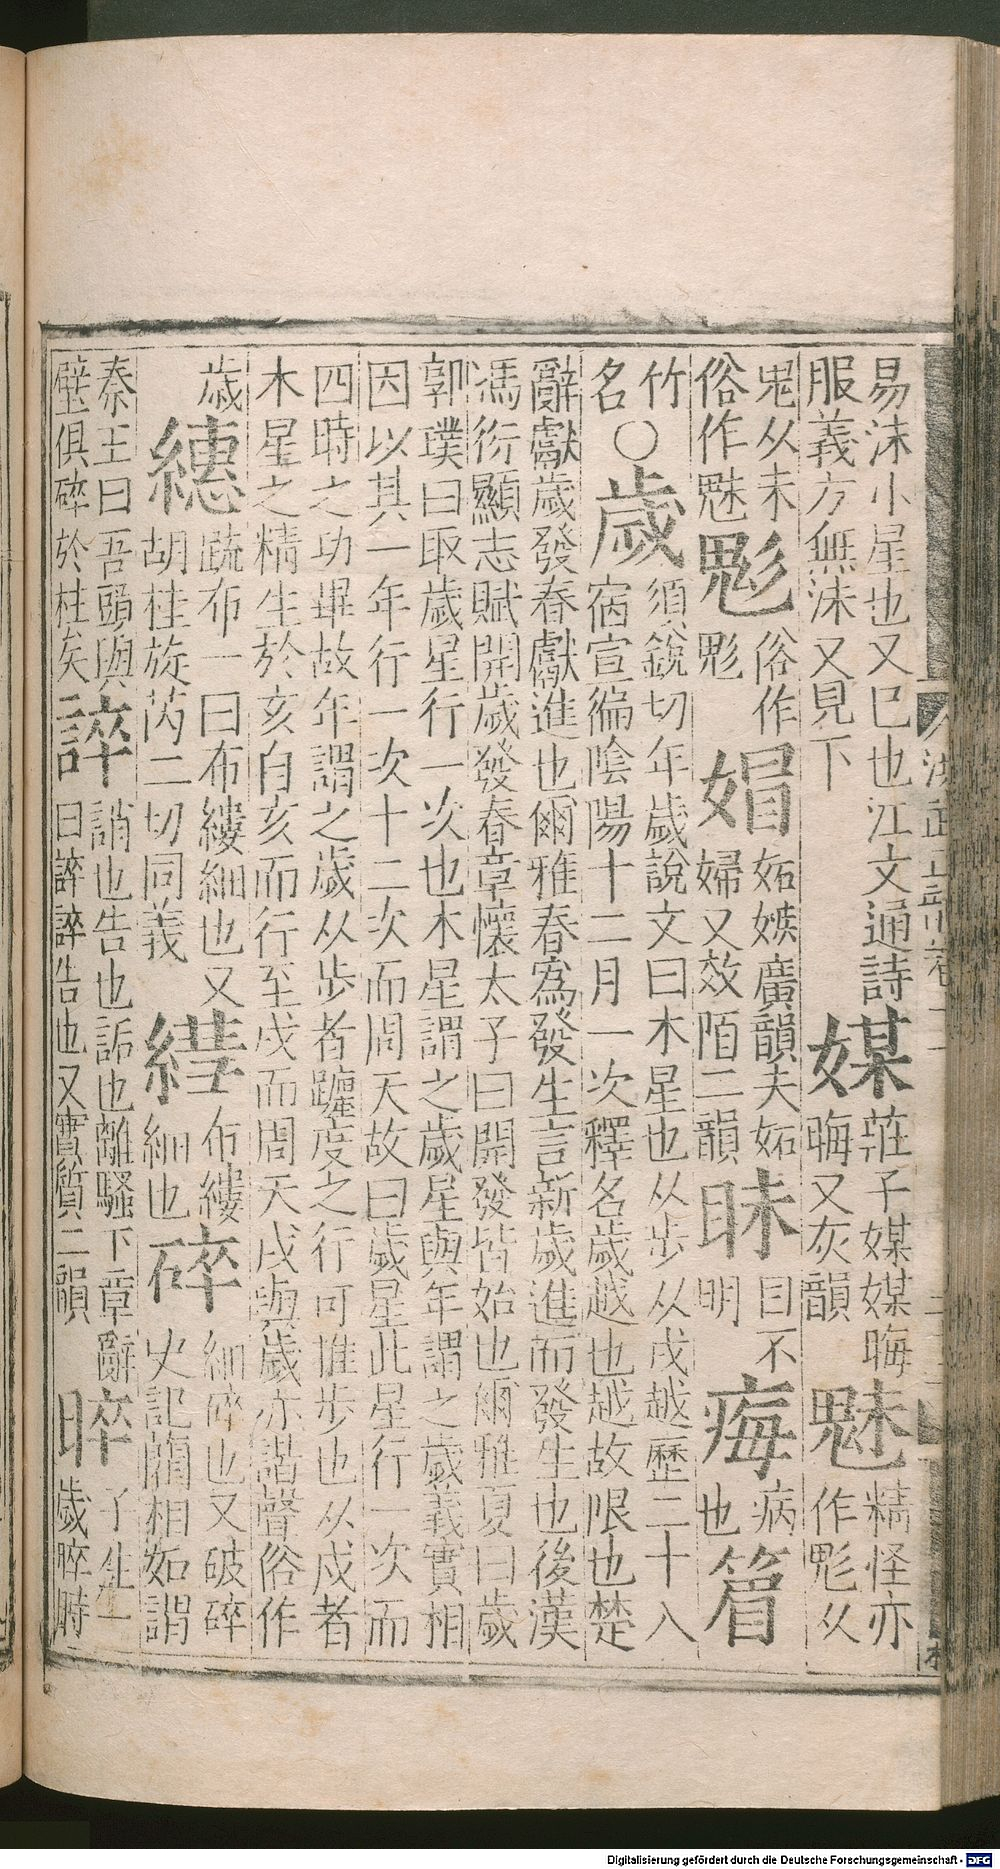 易沬小星也又巳也江文通詩
服義方無沬又見下
媒
莊子媒媒晦
晦又灰韻
魅
精怪亦
作鬽从
鬼从未
俗作魅
鬽
俗作
鬽
媢
妬嫉廣韻夫妬
婦又效陌二韻
眛
目不
明
痗
病
也
䈅
竹
名○
歲
須銳切年歲說文曰木星也从步从戌越歷二十八
宿宣徧陰陽十二月一次釋名歲越也越故限也楚
辭獻歲發春獻進也爾雅春爲發生言新歲進而發生也後漢
馮衍顯志賦開歲發春章懷太子曰開發皆始也爾雅夏曰歲
郭璞曰取歲星行一次也木星謂之歲星與年謂之歲義實相
因以其一年行一次十二次而周天故曰歲星此星行一次而
四時之功畢故年謂之歲从步者躔度之行可推步也从戌者
木星之精生於亥自亥而行至戌而周天戌與歲亦諧聲俗作
歳
繐
疏布一曰布縷細也又
胡桂旋芮二切同義
䌙
布縷
細也
碎
細碎也又破碎
史記藺相如謂
秦王曰吾頭與
璧俱碎於柱矣
誶
誚也告也詬也離騷下章辭
曰誶誶告也又實質二韻
晬
子生一
歲晬時